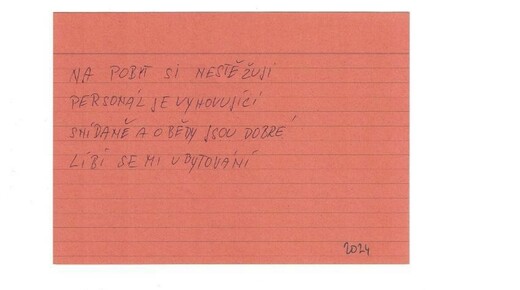 NA POBYT SI NESTĚŽUJI
PERSONÁL JE VYHOVUJÍCÍ
SNÍDANĚ A OBĚDY JSOU DOBRÉ
LÍBÍ SE MI UBYTOVÁNÍ
2024